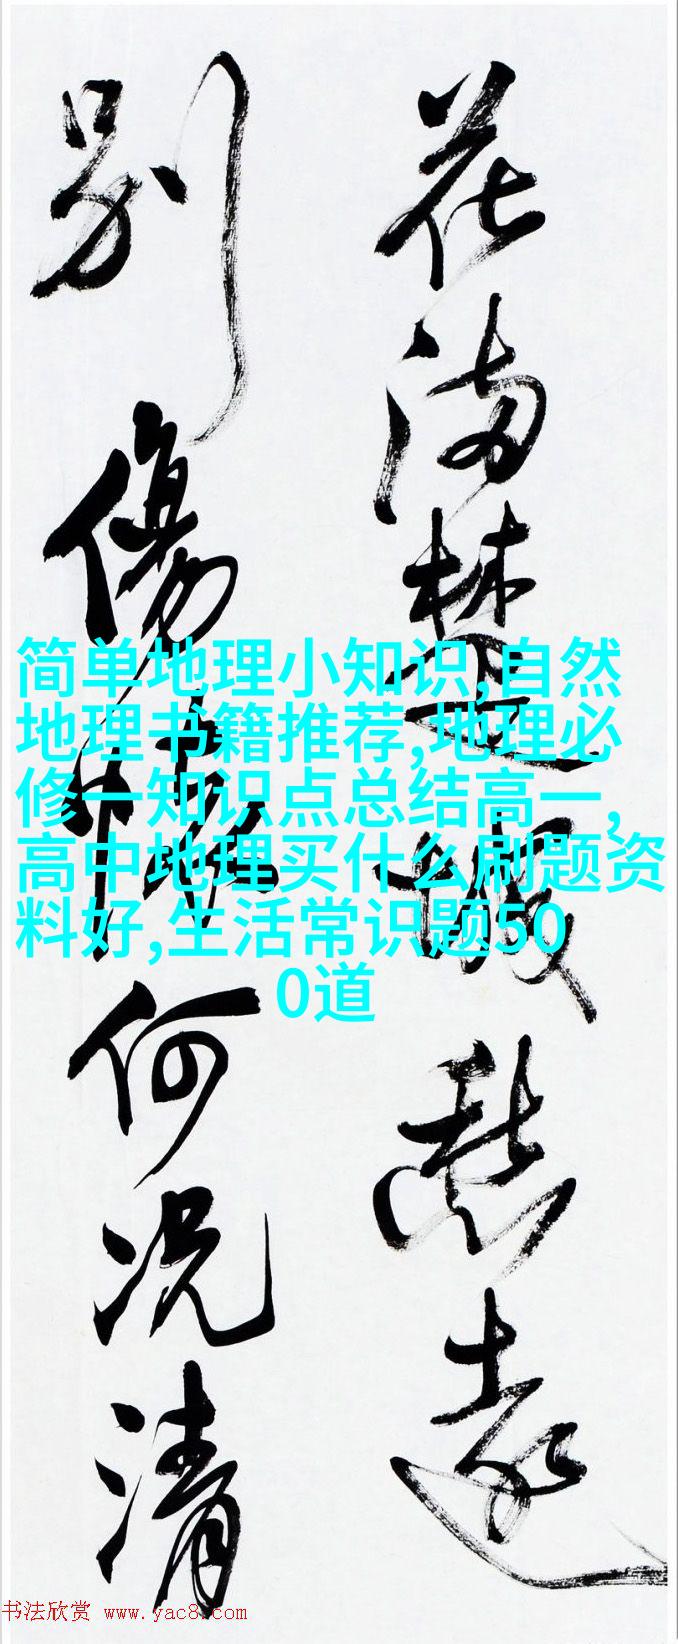 花滿楚城愁遠
別傷懷何況清
简单地理小知识,自然
地理书籍推荐,地理必
修一知识点总结高一,
高中地理买什么刷题资
料好,生活常识题50
0道
书法欣赏 www.yac8.com